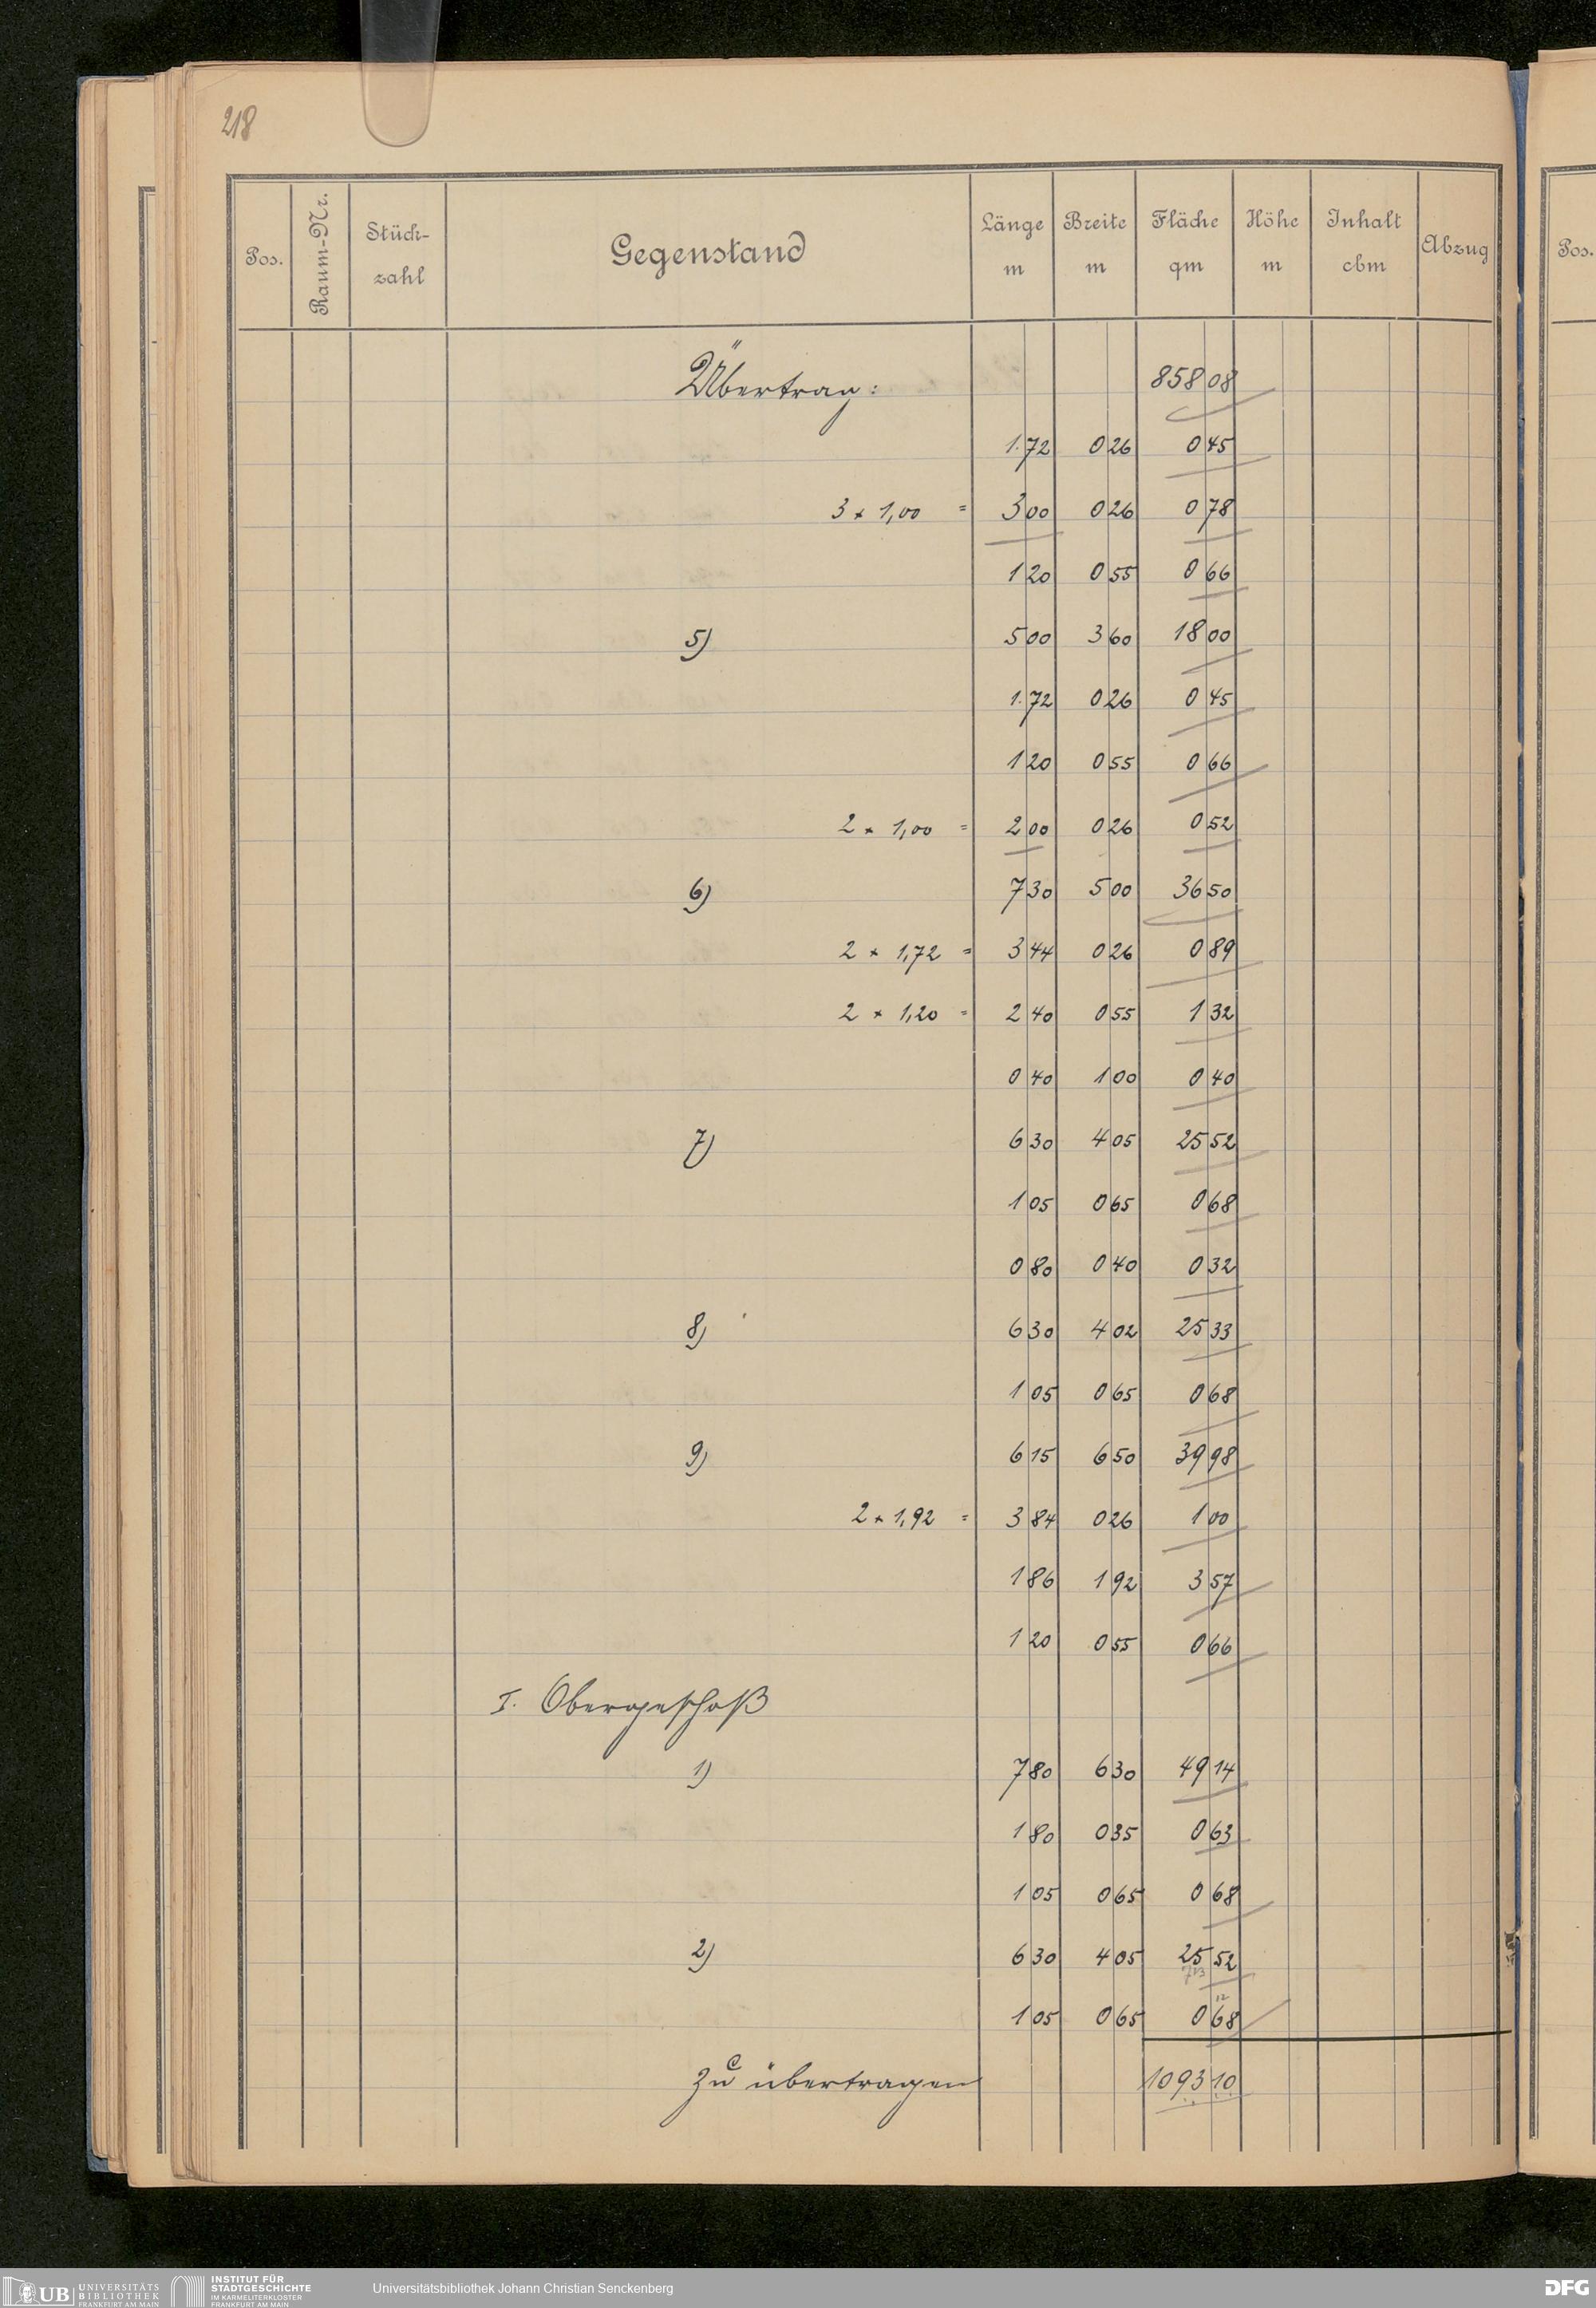 218
Pos. Raum-Nr. Stück-zahl Gegenstand Länge m Breite m Fläche qm Höhe m Inhalt cbm Abzug
Pos.
Übertrag: 858 08
1.72 0 26 0 45
3 x 1,00 = 3 00 0 26 0 78
1 20 0 55 0 66
5) 5 00 3 60 18 00
1.72 0 26 0 45
1 20 0 55 0 66
2 x 1,00 = 2 00 0 26 0 52
6) 7 30 5 00 36 50
2 x 1,72 = 3 44 0 26 0 89
2 x 1,20 = 2 40 0 55 1 32
0 40 1 00 0 40
7) 6 30 4 05 25 52
1 05 0 65 0 68
0 80 0 40 0 32
8) 6 30 4 02 25 33
1 05 0 65 0 68
9) 6 15 6 50 39 98
2 x 1,92 = 3 84 0 26 1 00
1 86 1 92 3 57
1 20 0 55 0 66
I. Obergeschoß
1) 7 80 6 30 49 14
1 80 0 35 0 63
1 05 0 65 0 68
2) 6 30 4 05 25 52
12
1 05 0 65 0 68
Zu übertragen 1093 10
UB UNIVERSITÄTS
BIBLIOTHEK
FRANKFURT AM MAIN
INSTITUT FÜR
STADTGESCHICHTE
IM KARMELITERKLOSTER
FRANKFURT AM MAIN
Universitätsbibliothek Johann Christian Senckenberg
DFG